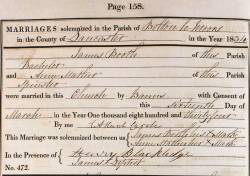 Page 158.
MARRIAGES solemnized in the Parish of Bolton le Moors
in the County of Lancaster in the Year 1834
James Booth of this Parish
Bachelor
and Ann Mather of this Parish
Spinster
were married in this Church by Banns with Consent of
this Sixteenth Day of
March in the Year One thousand eight hundred and thirty four
By me
This Marriage was solemnized between us James Booth his X Mark
Ann Mather her X Mark
In the Presence of Henry Blackledge
No. 472. James